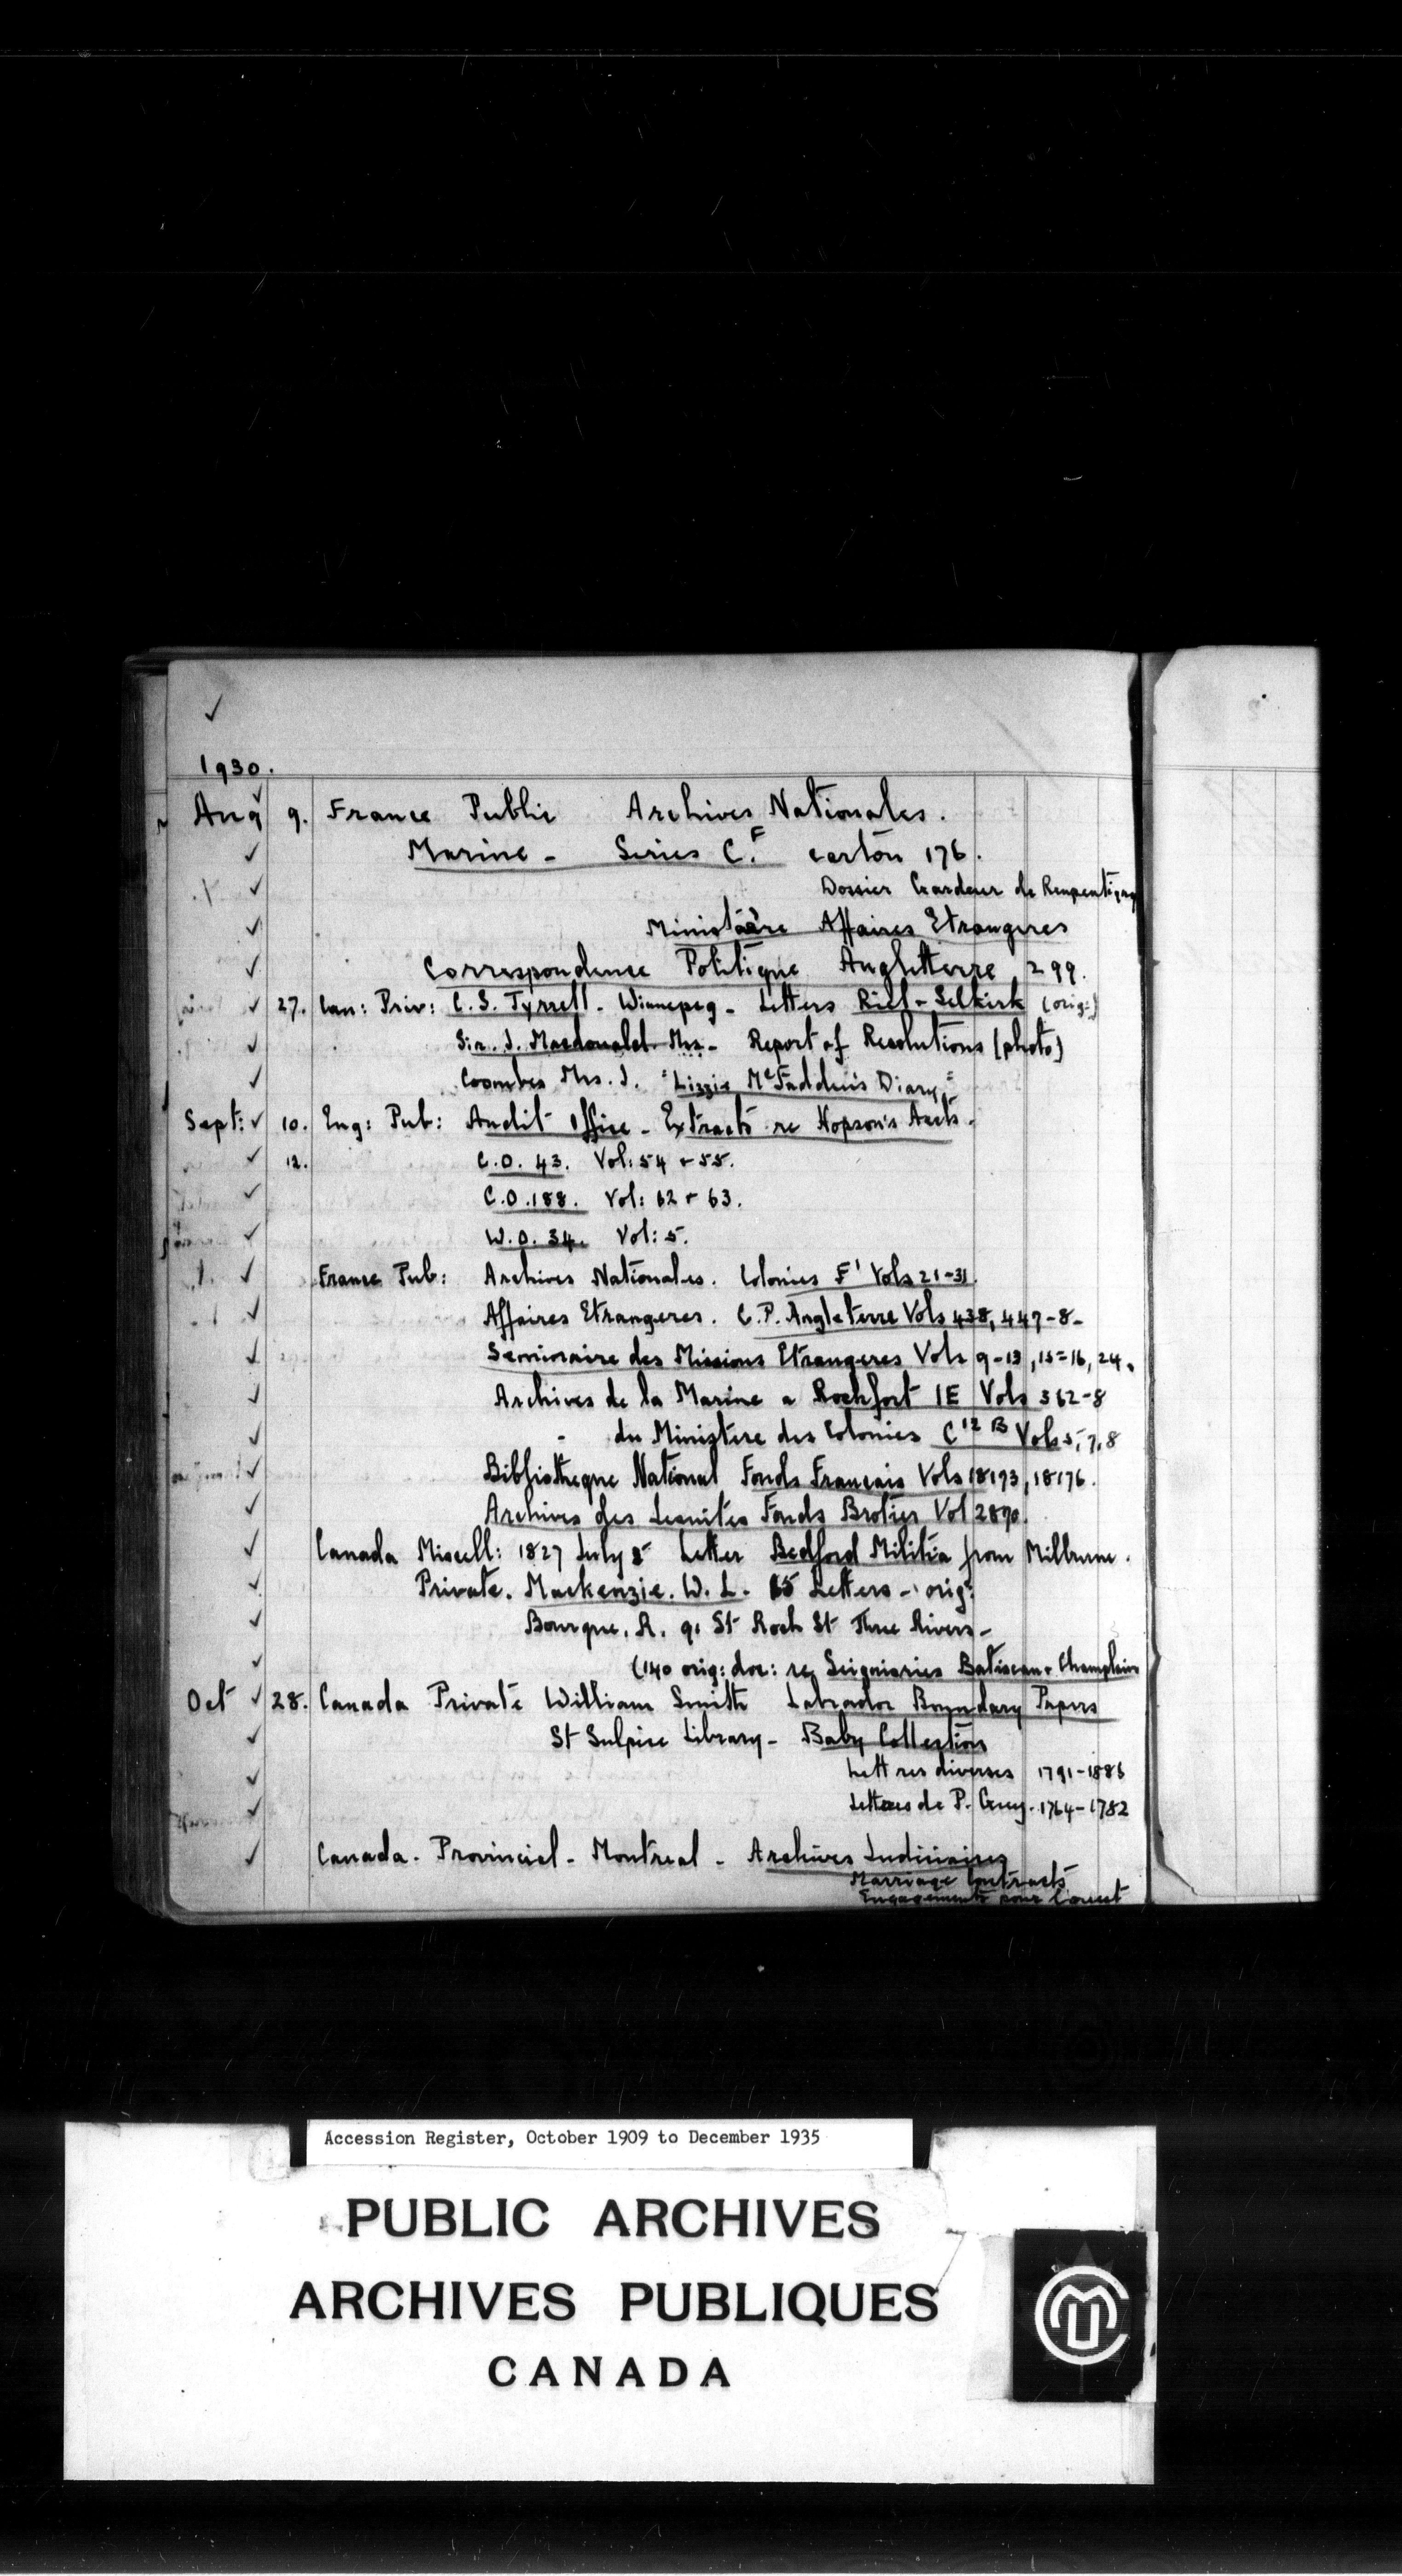 1930.
Aug 9. France Public Archives Nationales.
Marine - Series C.F carton 176.
Dossier Gardeur de Repentigny
Ministère Affaires Etrangeres
Correspondence Politique Angletterre 299.
27. Can: Priv: C. S. Tyrrell - Winnepeg - Letters Riel - Selkirk (orig:)
Sir. J. Macdonald. Mrs - Report of Resolutions (photo)
Coombes Mrs. J. "Lizzie McFadden's Diary"
Sept: 10. Eng: Pub: Audit Office - Extracts re Hopson's Accts.
12. C.O. 43. Vol: 54 + 55.
C.O. 188. Vol: 62 + 63.
W.O. 34. Vol: 5.
France Pub: Archives Nationales. Colonies F1 Vols 21-31.
Affaires Etrangeres. C.P. Angleterre Vols 438, 447-8-
Seminaire des Missions Etrangeres Vols 9-13, 15-16, 24.
Archives de la Marine a Rochfort 1E Vols 362-8
- du Ministere des Colonies C12 B Vols 5, 7, 8
Bibliotheque National Fonds Francais Vols 18193, 18176.
Archives des Jesuites Fonds Brotier Vol 2890.
Canada Miscell: 1827 July 8 Letter Bedford Militia from Milbrune.
Private. Mackenzie. W. L. 65 Letters - orig:
Bourque, R. 91 St Roch St Three Rivers -
(140 orig: doc: re Seigniories Batiscan + Champlain
Oct 28. Canada Private William Smith Labrador Boundary Papers
St Sulpice Library - Baby Collection
Lettres diverses 1791-1883
Lettres de P. Guy. 1764-1782
Canada. Provincial - Montreal - Archives Judiciaires
Marriage Contracts
Engagements pour l'ouest
Accession Register, October 1909 to December 1935
PUBLIC ARCHIVES
ARCHIVES PUBLIQUES
CANADA